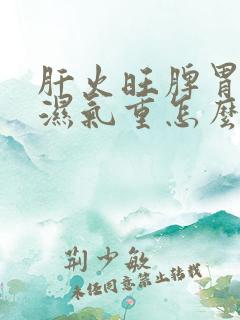 肝火旺脾胃
濕氣重怎麼
荊少敏
未任同意禁止转载